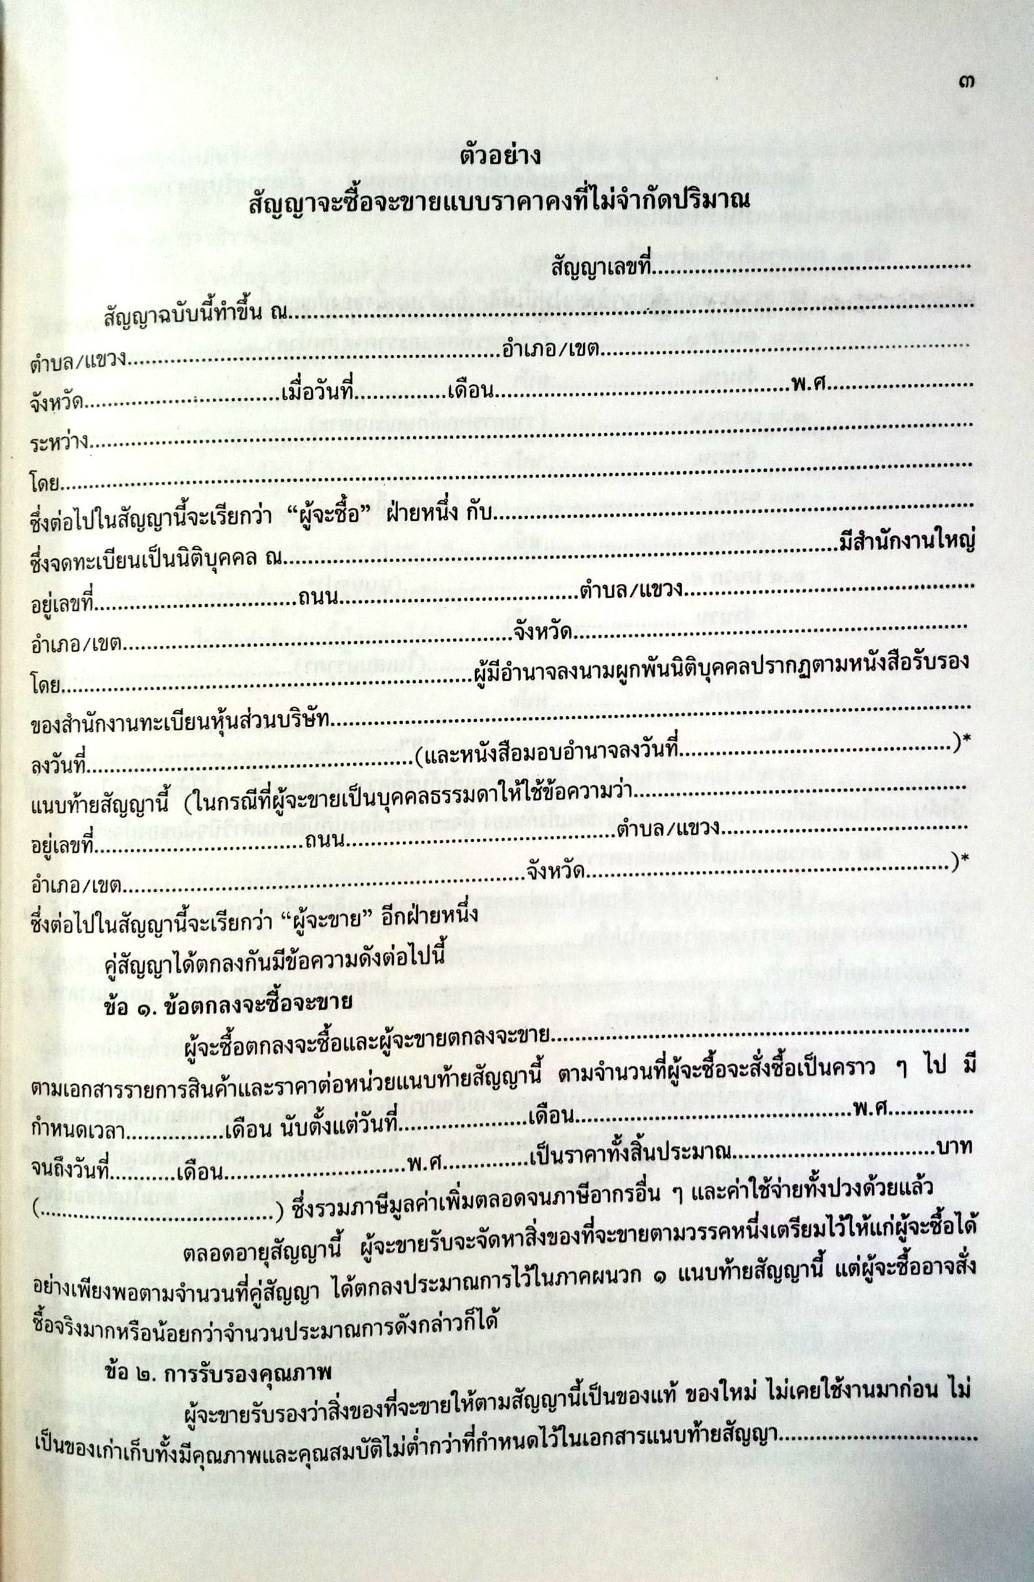 ๓
ตัวอย่าง
สัญญาจะซื้อจะขายแบบราคาคงที่ไม่จำกัดปริมาณ
สัญญาเลขที่................................................
สัญญาฉบับนี้ทำขึ้น ณ................................................................................................
ตำบล/แขวง....................................................อำเภอ/เขต....................................................
จังหวัด............................เมื่อวันที่.............เดือน..........................................พ.ศ.....................
ระหว่าง................................................................................................................................
โดย....................................................................................................................................
ซึ่งต่อไปในสัญญานี้จะเรียกว่า “ผู้จะซื้อ” ฝ่ายหนึ่ง กับ...................................................................
ซึ่งจดทะเบียนเป็นนิติบุคคล ณ...............................................................................มีสำนักงานใหญ่
อยู่เลขที่.............................ถนน..................................ตำบล/แขวง.........................................
อำเภอ/เขต.......................................................จังหวัด........................................................
โดย..........................................................ผู้มีอำนาจลงนามผูกพันนิติบุคคลปรากฏตามหนังสือรับรอง
ของสำนักงานทะเบียนหุ้นส่วนบริษัท...........................................................................................
ลงวันที่..............................................(และหนังสือมอบอำนาจลงวันที่......................................)*
แนบท้ายสัญญานี้ (ในกรณีที่ผู้จะขายเป็นบุคคลธรรมดาให้ใช้ข้อความว่า...............................................
อยู่เลขที่..............................ถนน......................................ตำบล/แขวง...................................
อำเภอ/เขต.........................................................จังหวัด....................................................)*
ซึ่งต่อไปในสัญญานี้จะเรียกว่า “ผู้จะขาย” อีกฝ่ายหนึ่ง
คู่สัญญาได้ตกลงกันมีข้อความดังต่อไปนี้
ข้อ ๑. ข้อตกลงจะซื้อจะขาย
ผู้จะซื้อตกลงจะซื้อและผู้จะขายตกลงจะขาย...........................................................
ตามเอกสารรายการสินค้าและราคาต่อหน่วยแนบท้ายสัญญานี้ ตามจำนวนที่ผู้จะซื้อจะสั่งซื้อเป็นคราว ๆ ไป มี
กำหนดเวลา..............เดือน นับตั้งแต่วันที่..................เดือน.......................................พ.ศ............
จนถึงวันที่.........เดือน..........................พ.ศ............เป็นราคาทั้งสิ้นประมาณ.............................บาท
(.................................) ซึ่งรวมภาษีมูลค่าเพิ่มตลอดจนภาษีอากรอื่น ๆ และค่าใช้จ่ายทั้งปวงด้วยแล้ว
ตลอดอายุสัญญานี้ ผู้จะขายรับจะจัดหาสิ่งของที่จะขายตามวรรคหนึ่งเตรียมไว้ให้แก่ผู้จะซื้อได้
อย่างเพียงพอตามจำนวนที่คู่สัญญา ได้ตกลงประมาณการไว้ในภาคผนวก ๑ แนบท้ายสัญญานี้ แต่ผู้จะซื้ออาจสั่ง
ซื้อจริงมากหรือน้อยกว่าจำนวนประมาณการดังกล่าวก็ได้
ข้อ ๒. การรับรองคุณภาพ
ผู้จะขายรับรองว่าสิ่งของที่จะขายให้ตามสัญญานี้เป็นของแท้ ของใหม่ ไม่เคยใช้งานมาก่อน ไม่
เป็นของเก่าเก็บทั้งมีคุณภาพและคุณสมบัติไม่ต่ำกว่าที่กำหนดไว้ในเอกสารแนบท้ายสัญญา.............................